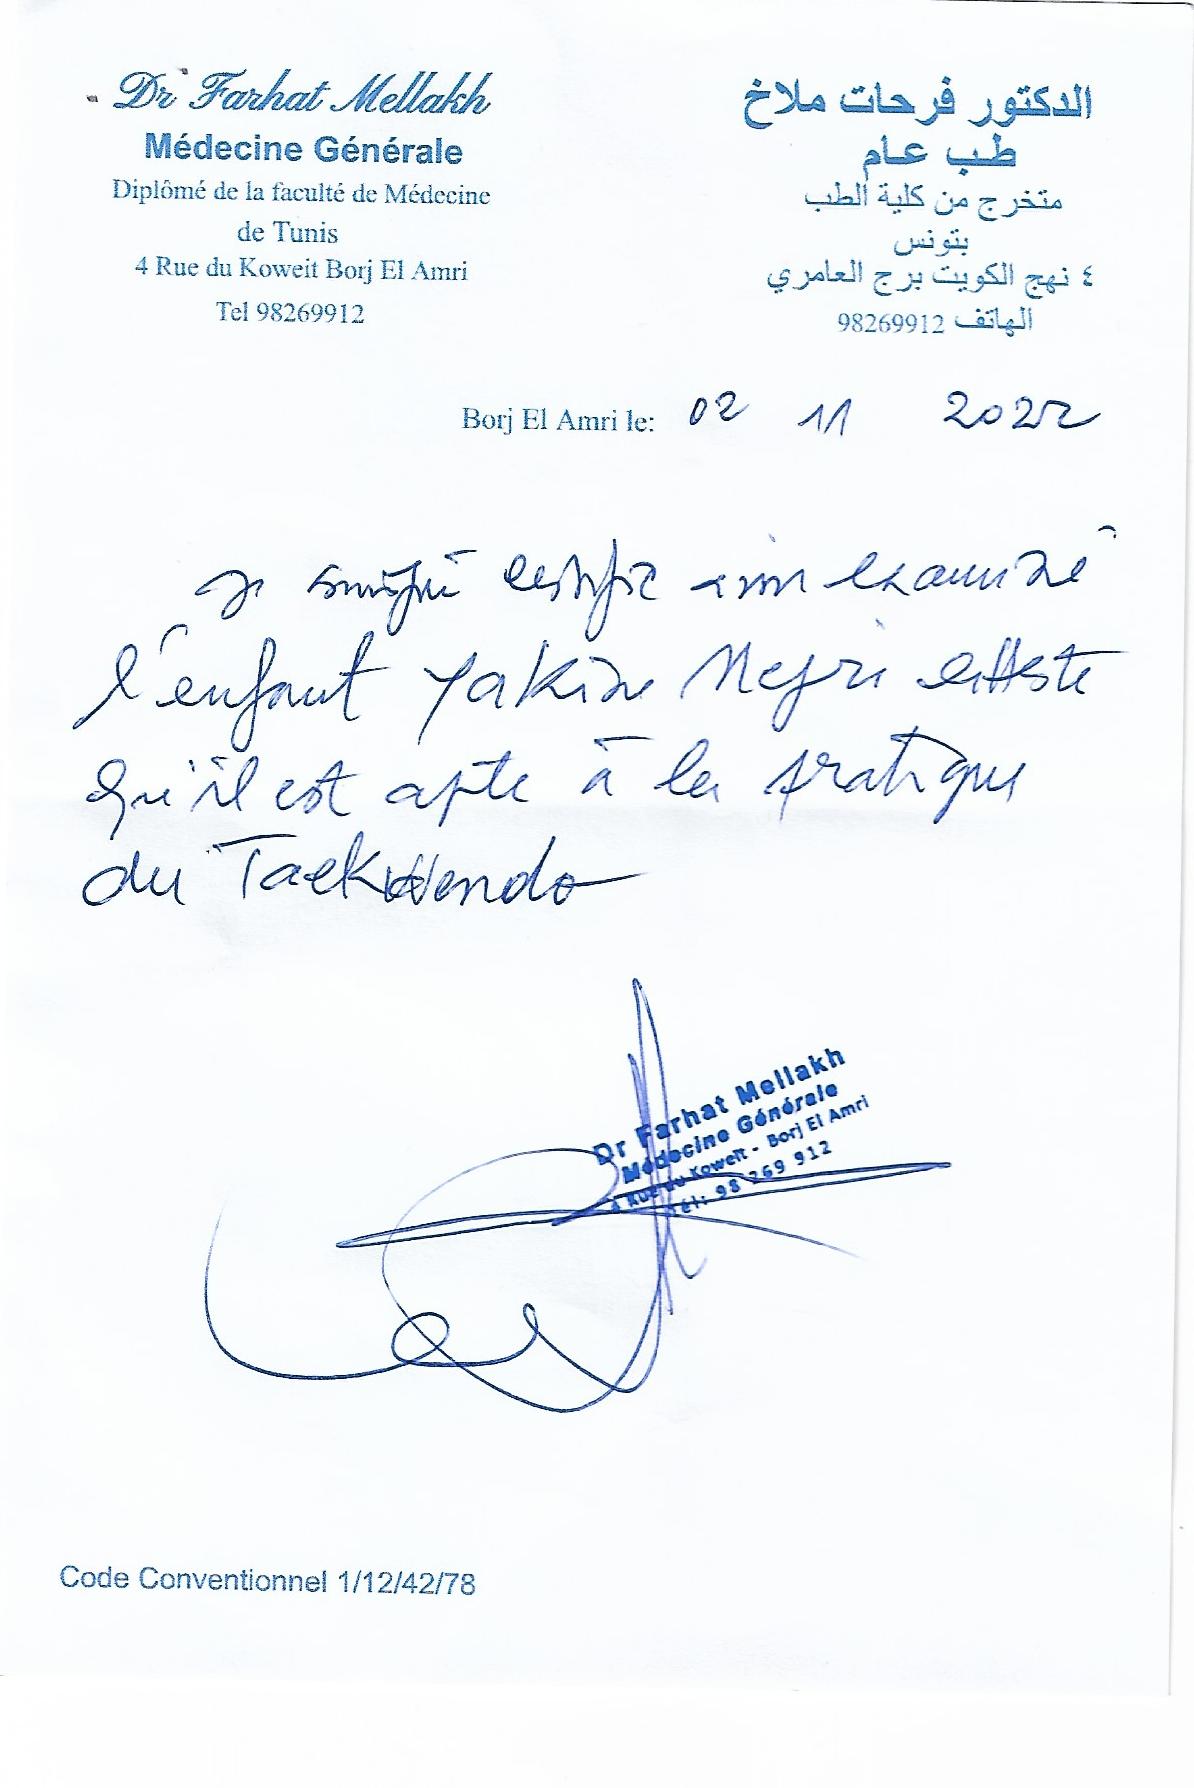 Dr Farhat Mellakh
Médecine Générale
Diplômé de la faculté de Médecine
de Tunis
4 Rue du Koweit Borj El Amri
Tel 98269912
الدكتور فرحات ملاخ
طب عام
متخرج من كلية الطب
بتونس
٤ نهج الكويت برج العامري
الهاتف 98269912
Borj El Amri le: 02 11 2022
Je soussigné certifie avoir examiné
l'enfant Yakine Nefri atteste
qu'il est apte à la pratique
du Taekwendo
Dr Farhat Mellakh
Médecine Générale
4 Rue du Koweit - Borj El Amri
Tél: 98 269 912
Code Conventionnel 1/12/42/78